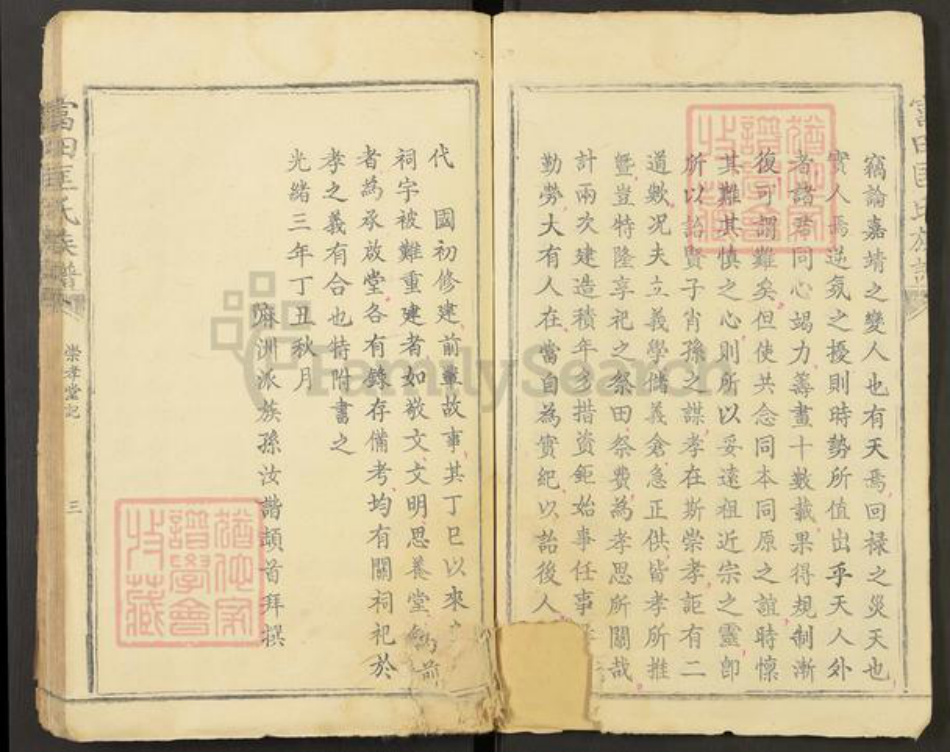 竊論嘉靖之變人也有天焉回祿之災天也
實人焉逆氛之擾則時勢所值出乎天人外
者諸君同心竭力籌畫十數載果得規制漸
復可謂難矣但使共念同本同原之誼時懷
其難其慎之心則所以妥遠祖近宗之靈卽
所以詒賢子肖孫之謀孝在斯崇孝詎有二
道歟况夫立義學儲義倉急正供皆孝所推
曁豈特隆享祀之祭田祭費為孝思所關哉
計兩次建造積年多措資鉅始事任事
勤勞大有人在當自為實紀以詒後人
代 國初修建前輩故事其丁巳以來
祠宇被難重建者如敬文文明思養堂 為前
者為承啟堂各有錄存備考均有關祠祀於
孝之義有合也特附書之
光緒三年丁丑秋月
麻洲派族孫汝諧頓首拜撰
富田匡氏族譜
崇孝堂記
三
富田匡氏族譜
譜學會
收藏
FamilySearch